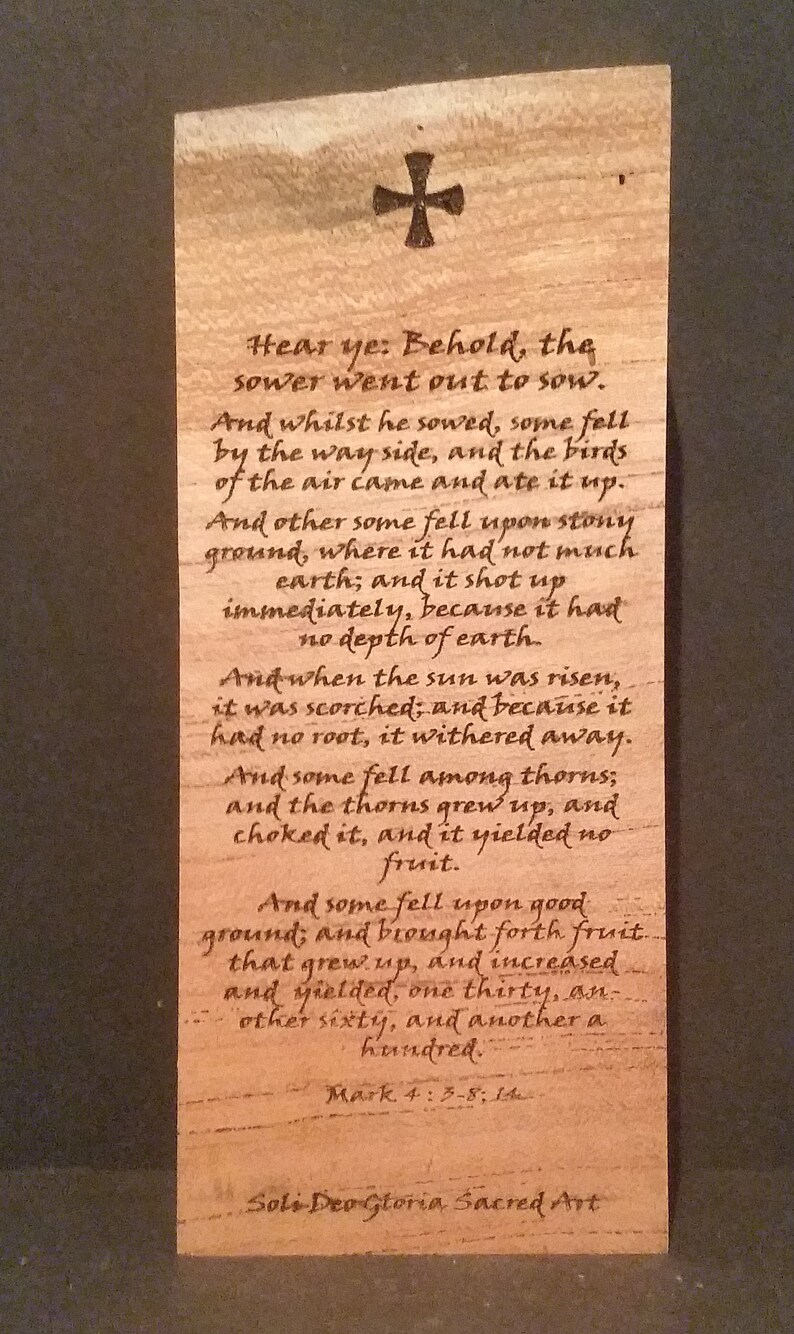 Hear ye: Behold, the
sower went out to sow.
And whilst he sowed, some fell
by the way side, and the birds
of the air came and ate it up.
And other some fell upon stony
ground, where it had not much
earth; and it shot up
immediately, because it had
no depth of earth.
And when the sun was risen,
it was scorched; and because it
had no root, it withered away.
And some fell among thorns;
and the thorns grew up, and
choked it, and it yielded no
fruit.
And some fell upon good
ground; and brought forth fruit
that grew up, and increased
and yielded, one thirty, an-
other sixty, and another a
hundred.
Mark 4 : 3-8; 14
Soli Deo Gloria Sacred Art